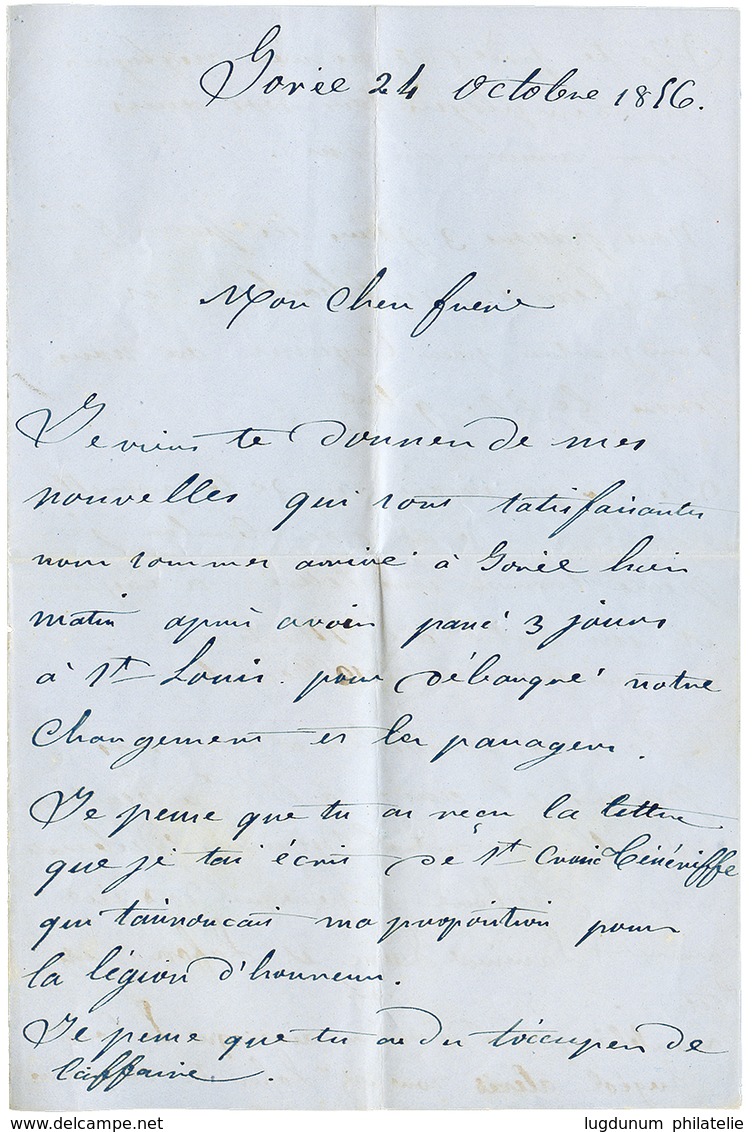 Gorée 24 Octobre 1856.
Mon Cher frère
Je viens te donner de mes
nouvelles qui sont satisfaisantes
nous sommes arrivé à Gorée hier
matin après avoir passé 3 jours
à St Louis pour débarqué notre
Chargement et les passagers.
Je pense que tu as reçu la lettre
que je tai écris de St Croix Ténériffe
qui tannoncais ma proposition pour
la légion d'honneur.
Je pense que tu as du t'occuper de
l'affaire.
lugdunum philatelie